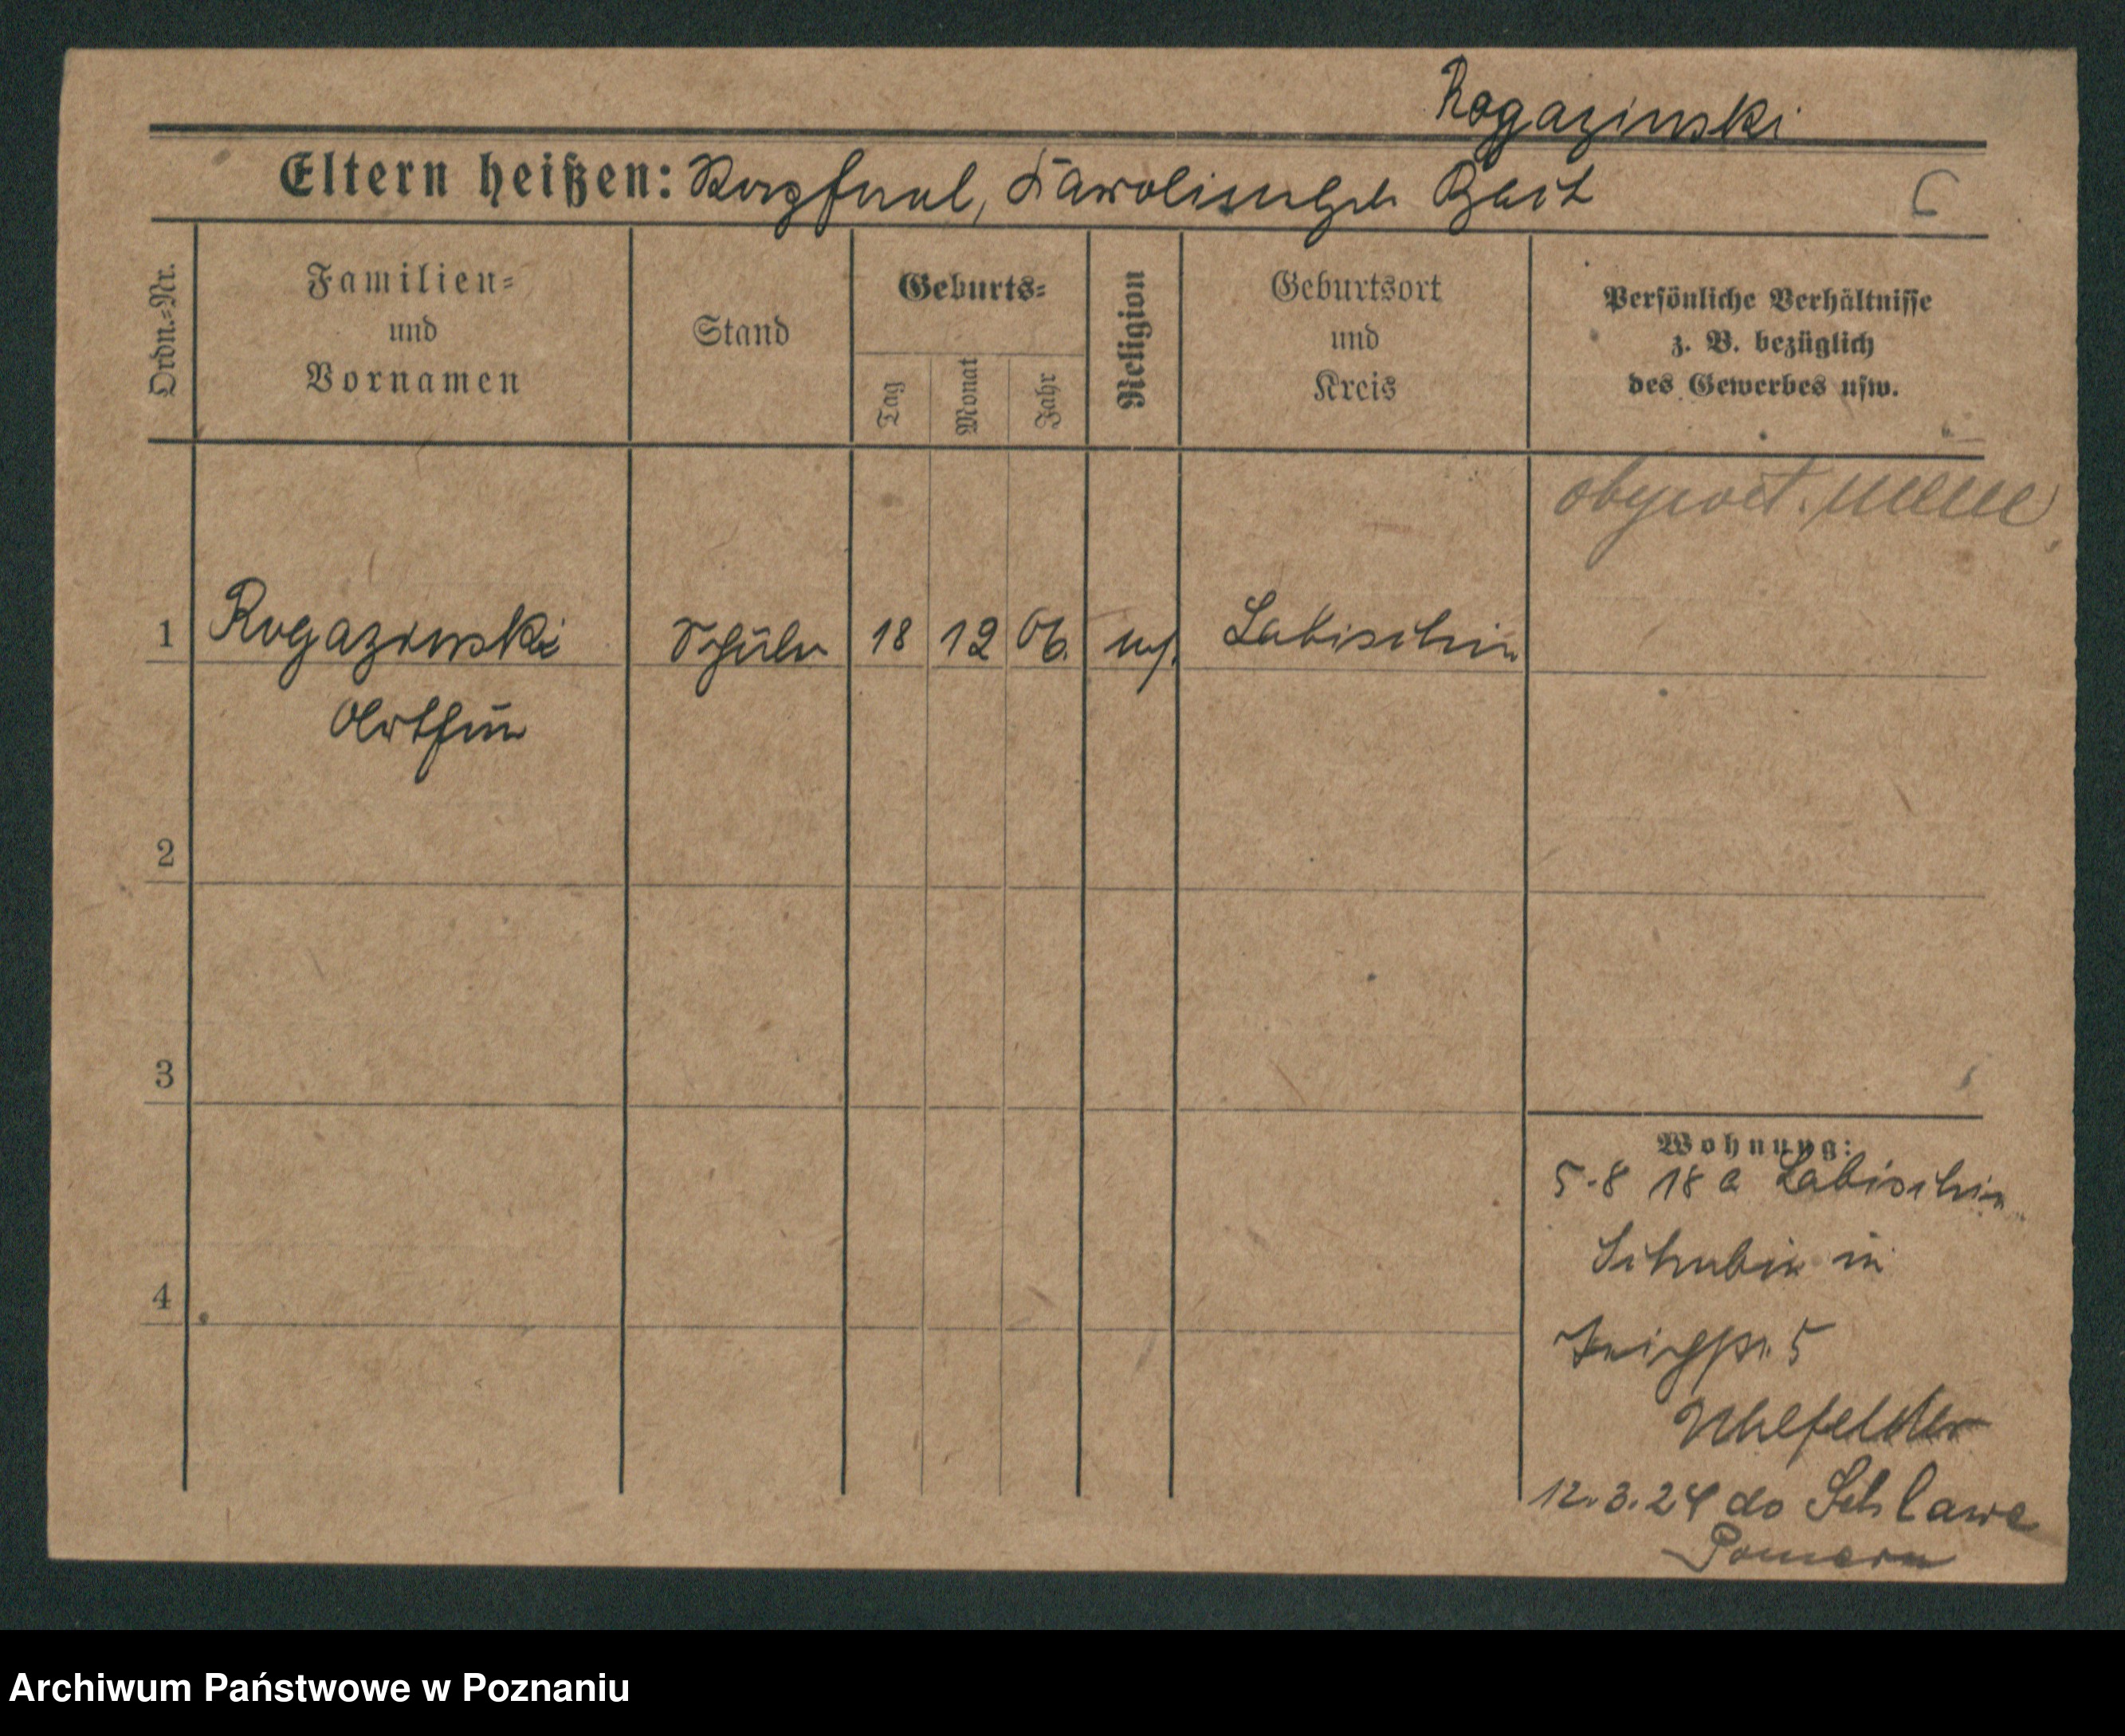 Rogazinski
Eltern heißen: Karoline geb
Ordn.-Nr.
Familien-
und
Vornamen
Stand
Geburts-
Tag
Monat
Jahr
Religion
Geburtsort
und
Kreis
Persönliche Verhältnisse
z. B. bezüglich
des Gewerbes usw.
1 Rogazinski Schüler 18 12 06. Labischin
Arthur
2
3
4
Wohnung:
5.8 18 a Labischin
Schubin in
5
12.3.24 do Schlawe
Pomern
Archiwum Państwowe w Poznaniu